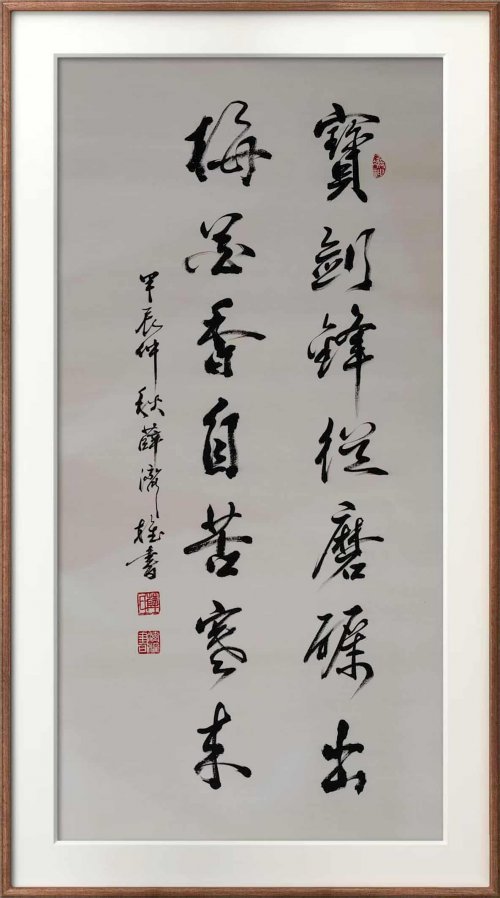 寶劍鋒從磨礪出
梅花香自苦寒來
甲辰仲秋薛濟雄書